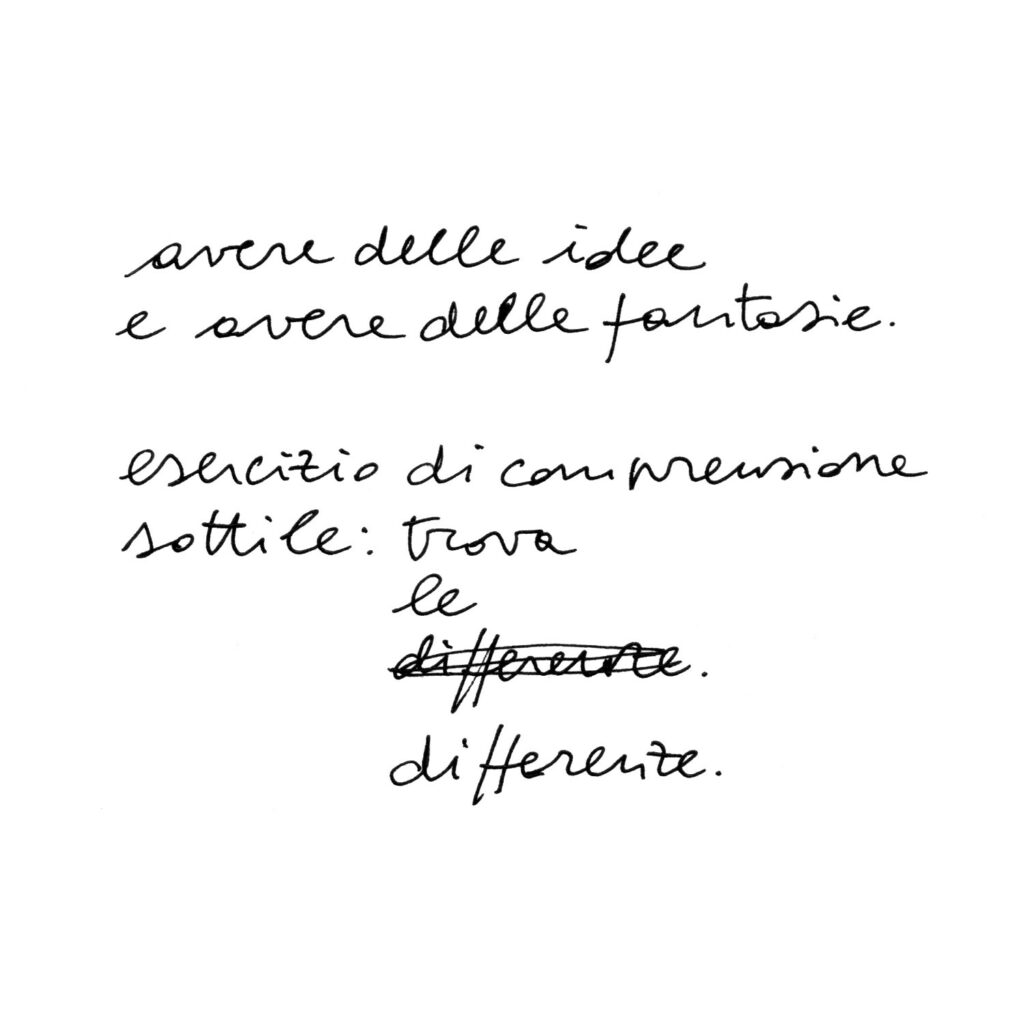 avere delle idee
e avere delle fantasie.
esercizio di comprensione
sottile: trova
le
differenze.
differenze.